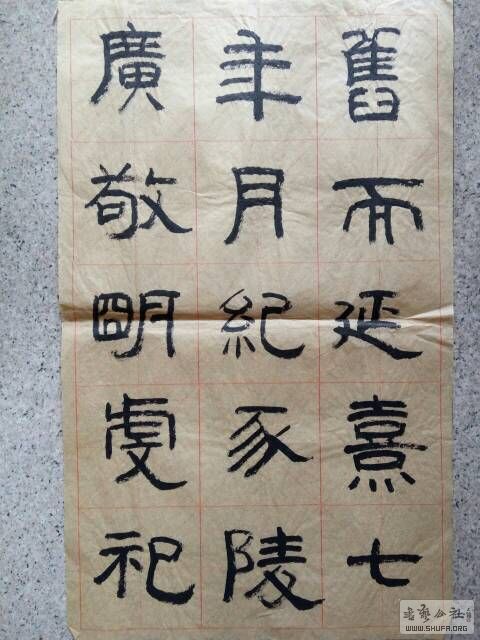 舊而延熹七
年月紀豕陵
廣敬朙虔祀
书艺公社
WWW.SHUFA.ORG